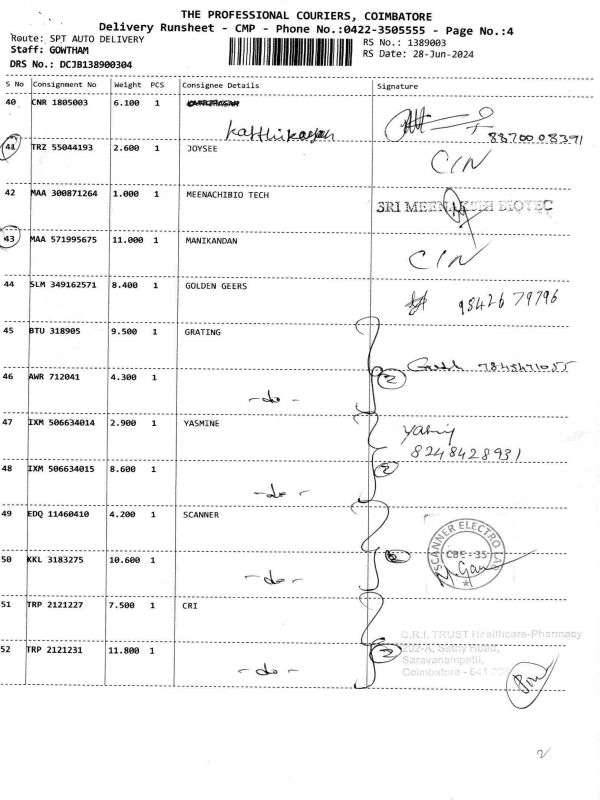 THE PROFESSIONAL COURIERS, COIMBATORE
Delivery Runsheet - CMP - Phone No.:0422-3505555 - Page No.:4
Route: SPT AUTO DELIVERY
RS No.: 1389003
Staff: GOWTHAM
RS Date: 28-Jun-2024
DRS No.: DCJB138900304
S No Consignment No Weight PCS Consignee Details Signature
40 CNR 1805003 6.100 1
8870008391
41 TRZ 55044193 2.600 1 JOYSEE
CIN
42 MAA 300871264 1.000 1 MEENACHIBIO TECH
SRI MEENAKSHI BIOTEC
43 MAA 571995675 11.000 1 MANIKANDAN
CIN
44 SLM 349162571 8.400 1 GOLDEN GEERS
98426 79796
45 BTU 318905 9.500 1 GRATING
46 AWR 712041 4.300 1
2
-do-
47 IXM 506634014 2.900 1 YASMINE
8248428931
48 IXM 506634015 8.600 1
2
-do-
49 EDQ 11460410 4.200 1 SCANNER
SCANNER ELECTRO LAB
CBE-35
50 KKL 3183275 10.600 1
-do-
51 TRP 2121227 7.500 1 CRI
C.R.I. TRUST Healthcare-Pharmacy
52 TRP 2121231 11.800 1
2
202-A, Sathy Road,
Saravanampatti,
-do-
Coimbatore - 641
2